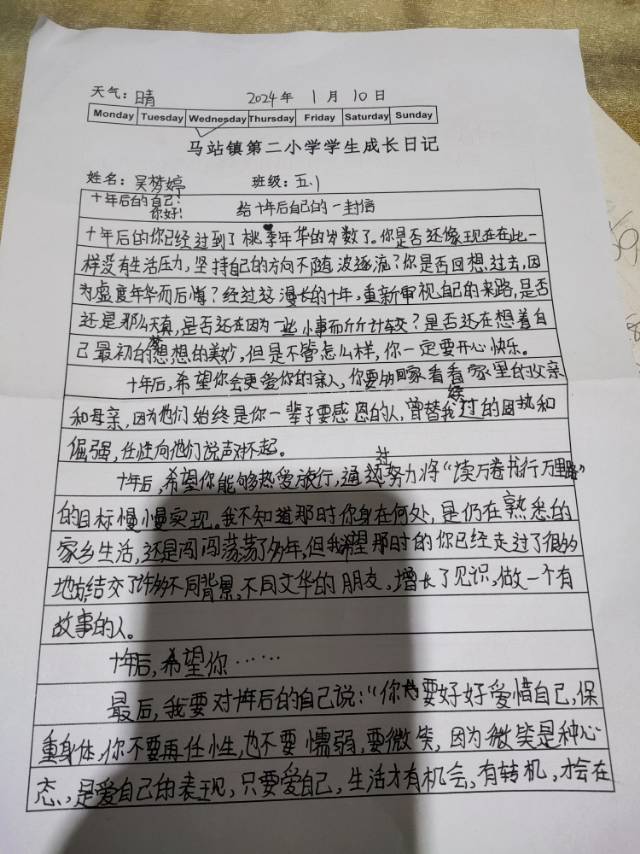 天气：晴 2024年 1月10日
Monday Tuesday Wednesday Thursday Friday Saturday Sunday
马站镇第二小学学生成长日记
姓名：吴梦婷 班级：五.1
十年后的自己： 给十年后自己的一封信
你好！
十年后的你已经过到了桃季年华的岁数了。你是否还像现在在此一
样没有生活压力，坚持自己的方向不随波逐流？你是否回想过去，因
为虚度年华而后悔？经过这漫长的十年，重新审视自己的来路，是否
还是那么天真，是否还在因为一些小事而斤斤计较？是否还在想着自
己最初的梦想的美妙，但是不管怎么样，你一定要开心快乐。
十年后，希望你会更爱你的亲人，你要多回家看看家里的父亲
和母亲，因为他们始终是你一辈子要感恩的人，曾替我经过的固执和
倔强，任性向他们说声对不起。
十年后，希望你能够热爱旅行，通过努力将“读万卷书行万里路”
的目标慢慢实现。我不知道那时你身在何处，是仍在熟悉的
家乡生活，还是闯闯荡荡了多年，但我希望那时的你已经走过了很多
地方结交了许多不同背景，不同文华的朋友，增长了见识，做一个有
故事的人。
十年后，希望你……
最后，我要对十年后的自己说：“你要好好爱惜自己，保
重身体，你不要再任性，也不要懦弱，要微笑，因为微笑是种心
态，是爱自己的表现，只要爱自己，生活才有机会，有转机，才会在